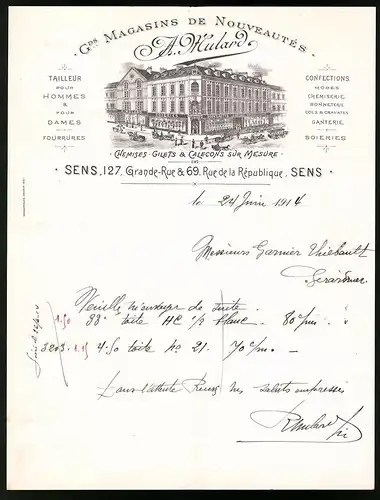 Gds Magasins de Nouveautés
A. Mulard
TAILLEUR
POUR
HOMMES
&
POUR
DAMES
FOURRURES
CONFECTIONS
MODES
CHEMISERIE
BONNETERIE
COLS & CRAVATES
GANTERIE
SOIERIES
CHEMISES · GILETS & CALEÇONS SUR MESURE
SENS, 127, Grande-Rue & 69, Rue de la République, SENS
le 24 Juin 1914
Messieurs Garnier Thiebault
Gérardmer
de suite.
1.50 toile blanc. 80 c/m.
3203. 1.15 4-50 toile no 21. 70 c/m.
Dans l'attente Recevez mes saluts empressés